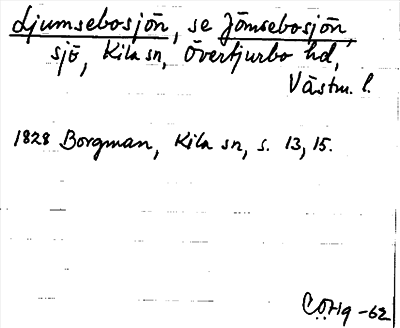 Ljumsebosjön, se Jömsebosjön,
sjö, Kila sn, Övertjurbo hd,
Västm. l.
1828 Borgman, Kila sn, s. 13, 15.
-62